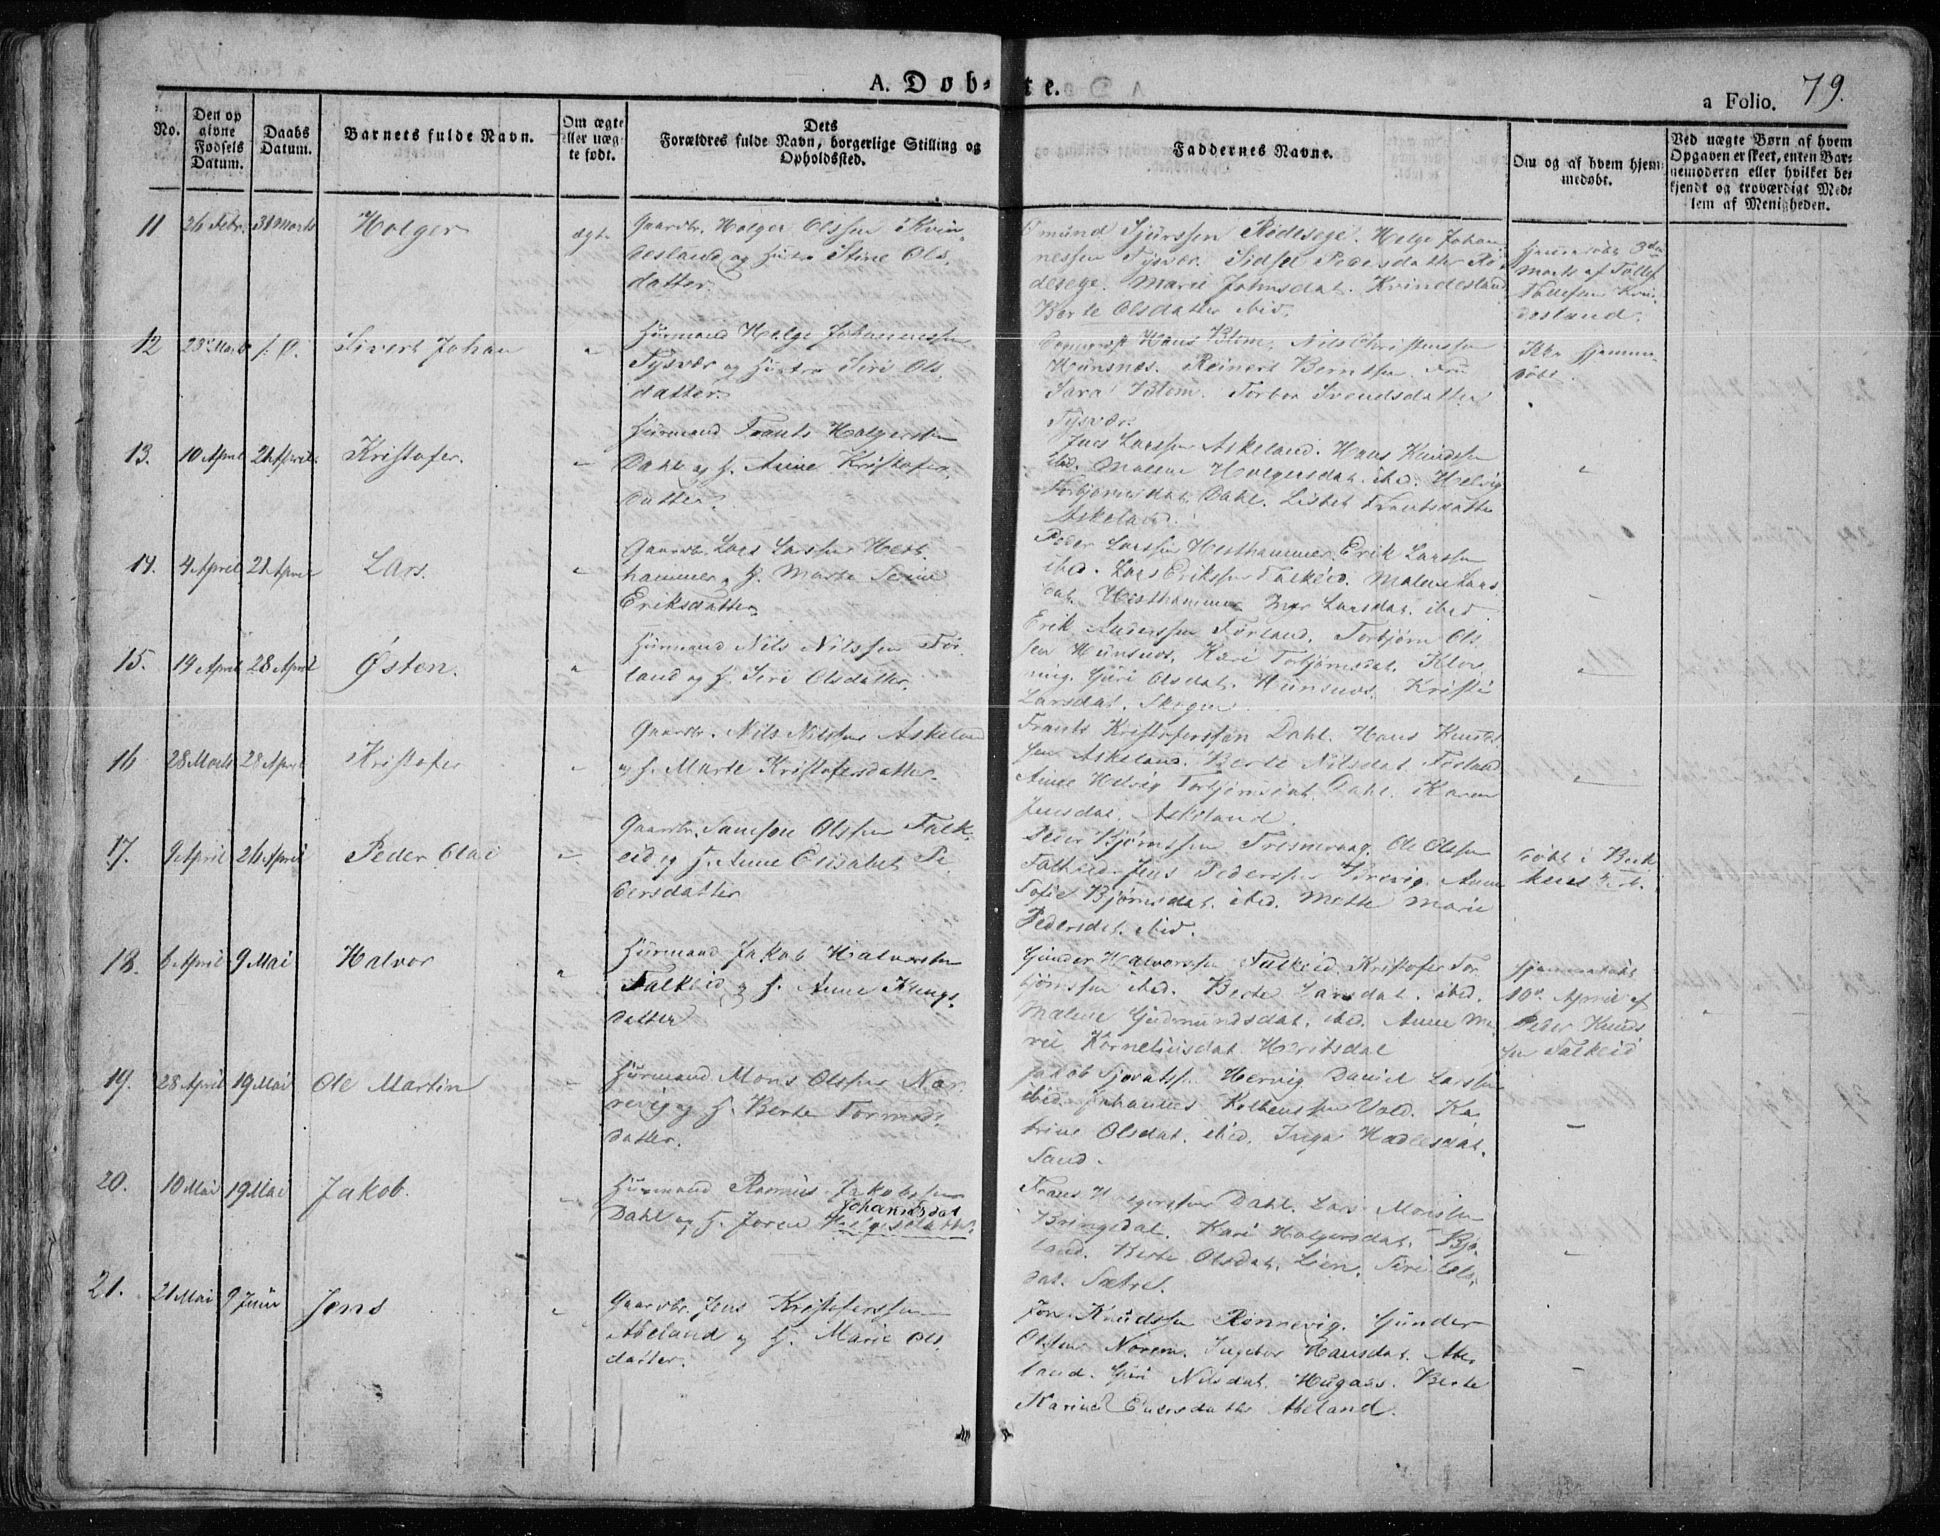 A. Døb-te.
a Folio. 79.
No.
Den op
givne
Fødsels
Datum.
Daabs
Datum.
Barnets fulde Navn.
Om ægte
eller uæg-
te født.
Dets
Forældres fulde Navn, borgerlige Stilling og
Opholdssted.
Faddernes Navne.
Om og af hvem hjem-
medøbt.
Ved uægte Børn af hvem
Opgaven er skeet, enten Bar-
nemoderen eller hvilket be-
kjendt og troværdigt Med-
lem af Menigheden.
11 26 Febr. 31 Marts Holger ægte
Gaardbr. Holger Olssen Kvin-
desland og Hustro Stine Ols-
datter.
Sjurssen Rødesege. Helge Johan-
nessen Tysvær. Sidsel Pedersdatter Rø-
desege. Marie Johnsdat. Kvindesland
Berte Olsdatter ibid.
Hjemmedøbt 3die
Marts af Tollef
Tollefsen Kvin-
desland.
12 28 Marts s. D. Sivert Johan "
Huusmand Helge Johannessen
Tysvær og Hustro Siri Ols-
datter.
Hans Blom. Nils Christensen
Hunsnes. Reinert Berntsen. Fru
Sara Blom. Torbor Svendsdatter
Tysvær.
Ikke hjemme-
døbt.
13. 10 April 21 April. Kristofer. "
Huusmand Frants Holgersen
Dahl og H. Anne Kristofer-
datter.
Lars Larssen Askeland. Hans Knudssen
ibid. Malene Holgersdat. ibid. Helvig
Torbjørnsdat. Dahl. Lisbet Frantsdatter
Askeland.
"
14. 4 April 21 April Lars. "
Gaardbr. Lars Larssen Hest-
hammer og H. Marta Serine
Eriksdatter.
Peder Larssen Hesthammer. Erik Larssen
ibid. Lars Erikssen Falkeid. Malene Lars-
dat. Hesthammer Inger Larsdat. ibid.
"
15. 14 April 28 April Østen. "
Huusmand Nils Nilssen Før-
land og H. Siri Olsdatter.
Erik Anderssen Førland. Torbjørn Ols-
sen Hunsnes. Kari Torbjørnsdat. Klov-
ning. Guri Olsdat. Hunsnes. Kristi
Larsdat. Skogen.
"
16 28 Marts 28 April Kristofer "
Gaardbr. Nils Nilssen Askeland
og H. Marte Kristofersdatter.
Frants Kristoferssøn Dahl. Hans Knuds-
sen Askeland. Berte Nilsdat. Førland
Anne Helvig Torbjørnsdat. Dahl. Karen
Jensdat. Askeland.
"
17. 9 April 26 April Peder Olai "
Gaardbr. Samson Olssen Falk-
eid og H. Anne Elisabet Pe-
dersdatter
Peder Bjørnssen Ole Olssen
Falkeid. Jens Pederssen Anne
Sofie Bjørnsdat. ibid. Mette Marie
Pedersdat. ibid.
Døbt i
18. 6 April 9 Mai Halvor "
Huusmand Jakob Halvorsen
Falkeid og H. Anne Knuds-
datter
Gunder Halvorssen Falkeid. Kristofer Tor-
bjørnssen ibid. Berte Larsdat. ibid.
Malene Gudmundsdat. ibid. Anne Ma-
rie Korneliusdat.
Hjemmedøbt
10de April af
Peder Knuds-
sen Falkeid
19. 28 April 19 Mai Ole Martin "
Huusmand Mons Olssen Nor-
revig og H. Berte Tormods-
datter.
Jakob Hervig Daniel Larssen
ibid. Johannes Vold. Ka-
trine Olsdat. ibid. Inga
Sand.
"
20. 10 Mai 19 Mai Jakob. "
Huusmand Rasmus Jakobssen
Johannesdat
Dahl og H. Joren Helgesdatter.
Frans Holgerssen Dahl. Lars Monssen
Bringedal. Kari Holgersdat. Bjø-
land. Berte Olsdat. Lien. Siri Ols-
dat. Sætret.
"
21. 21 Mai 9 Juni Jens "
Gaardbr. Jens Kristoferssen
Abeland og H. Marie Ols-
datter.
Jon Knudssen Rønnevig. Gunder
Olssen Norem. Ingebor Hansdat. Abe-
land. Guri Nilsdat. Hugaas. Berte
Karine Abeland.
"